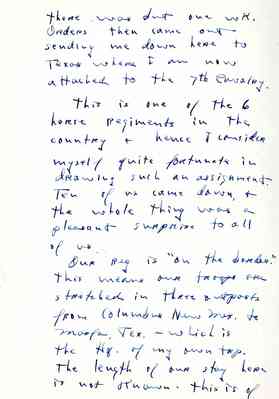 there was but one wk.
Orders then came out
sending me down here to
Texas where I am now
attached to the 7th Cavalry.
This is one of the 6
horse regiments in the
country & hence I consider
myself quite fortunate in
drawing such an assignment.
Ten of us came down, &
the whole thing was a
pleasant surprise to all
of us.
Our reg is "on the border."
This means our troops are
stretched in three outposts
from Columbus New Mex. to
Tex. - which is
the Hq. of my own trp.
The length of our stay here
is not known. This is of